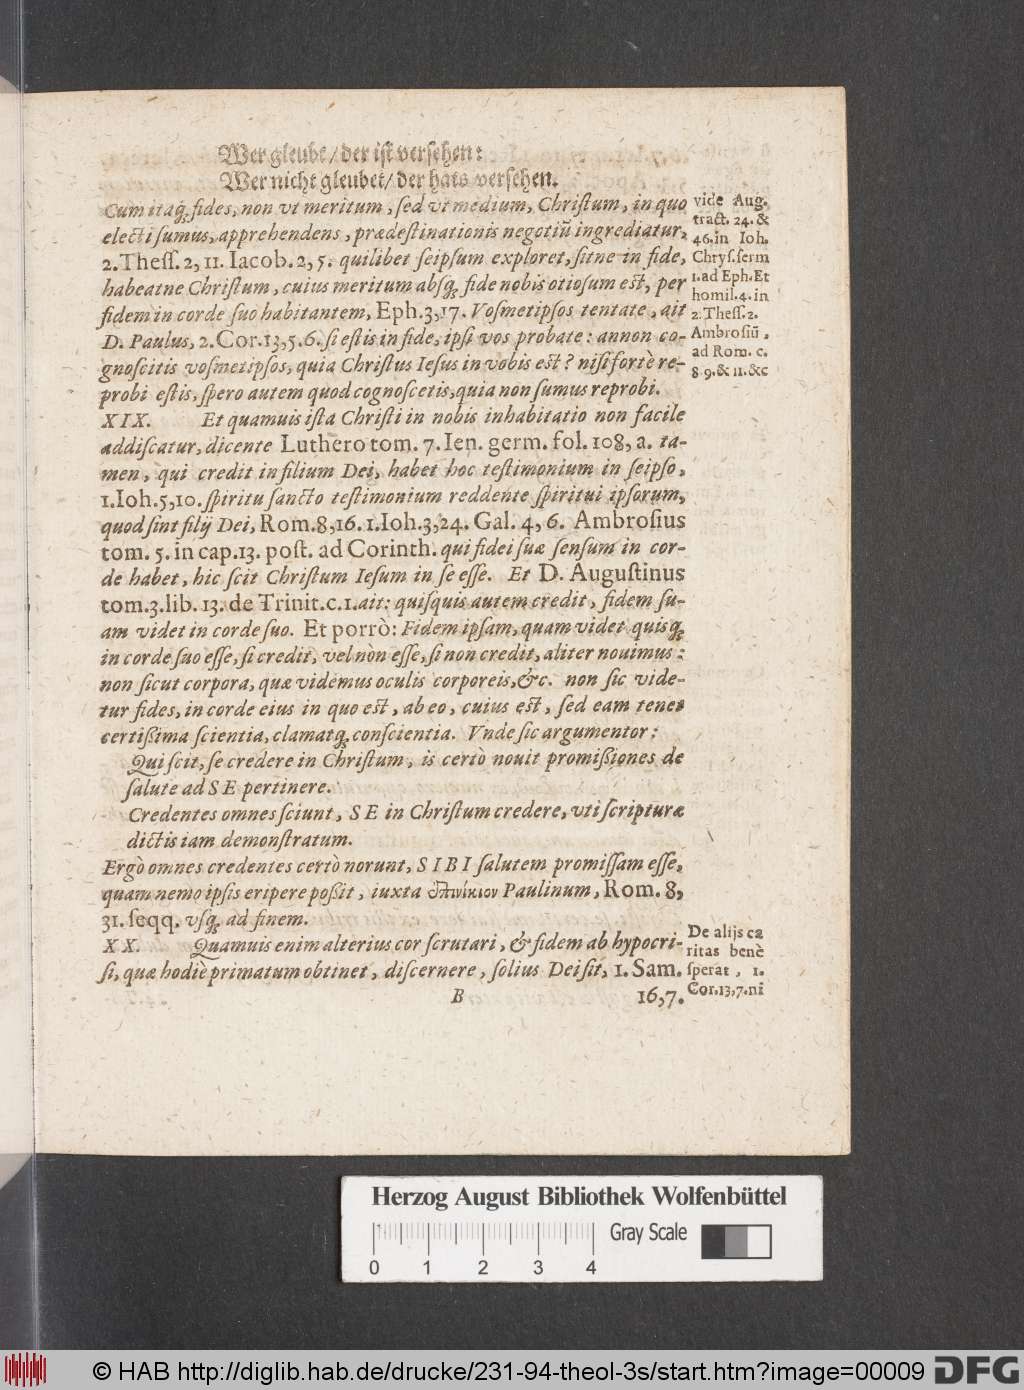 Wer gleubt / der ist versehen:
Wer nicht gleubet / der hats versehen.
Cum itaq; fides, non vt meritum, ſed vt medium, Chriſtum, in quo
electi ſumus, apprehendens, prædeſtinationis negotiũ ingrediatur,
2. Theſſ. 2, 11. Iacob. 2, 5. quilibet ſeipſum exploret, ſitne in fide,
habeatne Chriſtum, cuius meritum abſq; fide nobis otioſum eſt, per
fidem in corde ſuo habitantem, Eph. 3, 17. Voſmetipſos tentate, ait
D. Paulus, 2. Cor. 13, 5. 6. ſi eſtis in fide, ipſi vos probate: annon co-
gnoſcitis voſmetipſos, quia Chriſtus Ieſus in vobis eſt? niſi fortè re-
probi eſtis, ſpero autem quod cognoſcetis, quia non ſumus reprobi.
XIX. Et quamuis iſta Chriſti in nobis inhabitatio non facile
addiſcatur, dicente Luthero tom. 7. Ien. germ. fol. 108, a. ta-
men, qui credit in filium Dei, habet hoc teſtimonium in ſeipſo,
1. Ioh. 5, 10. ſpiritu ſancto teſtimonium reddente ſpiritui ipſorum,
quod ſint filij Dei, Rom. 8, 16. 1. Ioh. 3, 24. Gal. 4, 6. Ambroſius
tom. 5. in cap. 13. poſt. ad Corinth. qui fidei ſuæ ſenſum in cor-
de habet, hic ſcit Chriſtum Ieſum in ſe eſſe. Et D. Auguſtinus
tom. 3. lib. 13. de Trinit. c. 1. ait: quiſquis autem credit, fidem ſu-
am videt in corde ſuo. Et porrò: Fidem ipſam, quam videt quisq;
in corde ſuo eſſe, ſi credit, vel nòn eſſe, ſi non credit, aliter nouimus:
non ſicut corpora, quæ videmus oculis corporeis, &c. non ſic vide-
tur fides, in corde eius in quo eſt, ab eo, cuius eſt, ſed eam tenet
certißima ſcientia, clamatq; conſcientia. Vnde ſic argumentor:
Qui ſcit, ſe credere in Chriſtum, is certò nouit promißiones de
ſalute ad SE pertinere.
Credentes omnes ſciunt, SE in Chriſtum credere, vti ſcripturæ
dictis iam demonſtratum.
Ergò omnes credentes certò norunt, SIBI ſalutem promiſſam eſſe,
quam nemo ipſis eripere poßit, iuxta ἐπινίκιον Paulinum, Rom. 8,
31. ſeqq. vſq; ad finem.
XX. Quamuis enim alterius cor ſcrutari, & fidem ab hypocri-
ſi, quæ hodiè primatum obtinet, diſcernere, ſolius Dei ſit, 1. Sam.
B 16, 7.
vide Aug.
tract. 24. &
46. in Ioh.
Chryſ. ſerm
1. ad Eph. Et
homil. 4. in
2. Theſſ. 2.
Ambroſiũ,
ad Rom. c.
8 9. & 11. &c
De alijs ca
ritas benè
ſperat, 1.
Cor. 13, 7. ni
Herzog August Bibliothek Wolfenbüttel
Gray Scale
0 1 2 3 4
© HAB http://diglib.hab.de/drucke/231-94-theol-3s/start.htm?image=00009
DFG